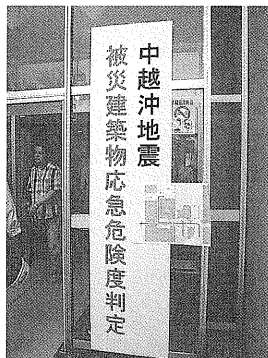 中越沖地震
被災建築物応急危険度判定